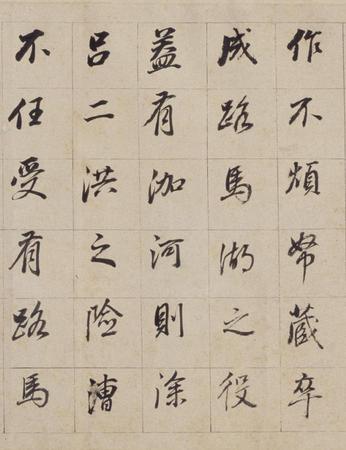 作不煩帑藏卒
成路馬湖之役
葢有泇河則涂
吕二洪之险漕
不任受有路馬